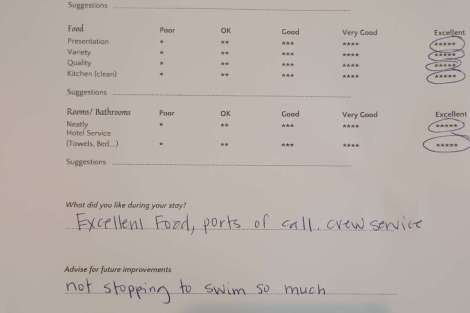 Suggestions
Food Poor OK Good Very Good Excellent
Presentation * ** *** **** *****
Variety * ** *** **** *****
Quality * ** *** **** *****
Kitchen (clean) * ** *** **** *****
Suggestions
Rooms/ Bathrooms Poor OK Good Very Good Excellent
Neatly * ** *** **** *****
Hotel Service
(Towels, Bed...) * ** *** **** *****
Suggestions
What did you like during your stay?
Excellent Food, ports of call. crew service
Advise for future improvements
not stopping to swim so much